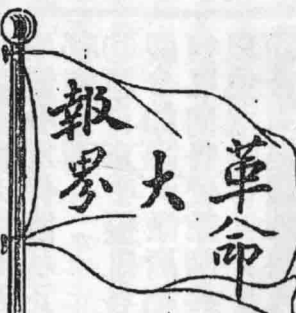 報界
大
革命